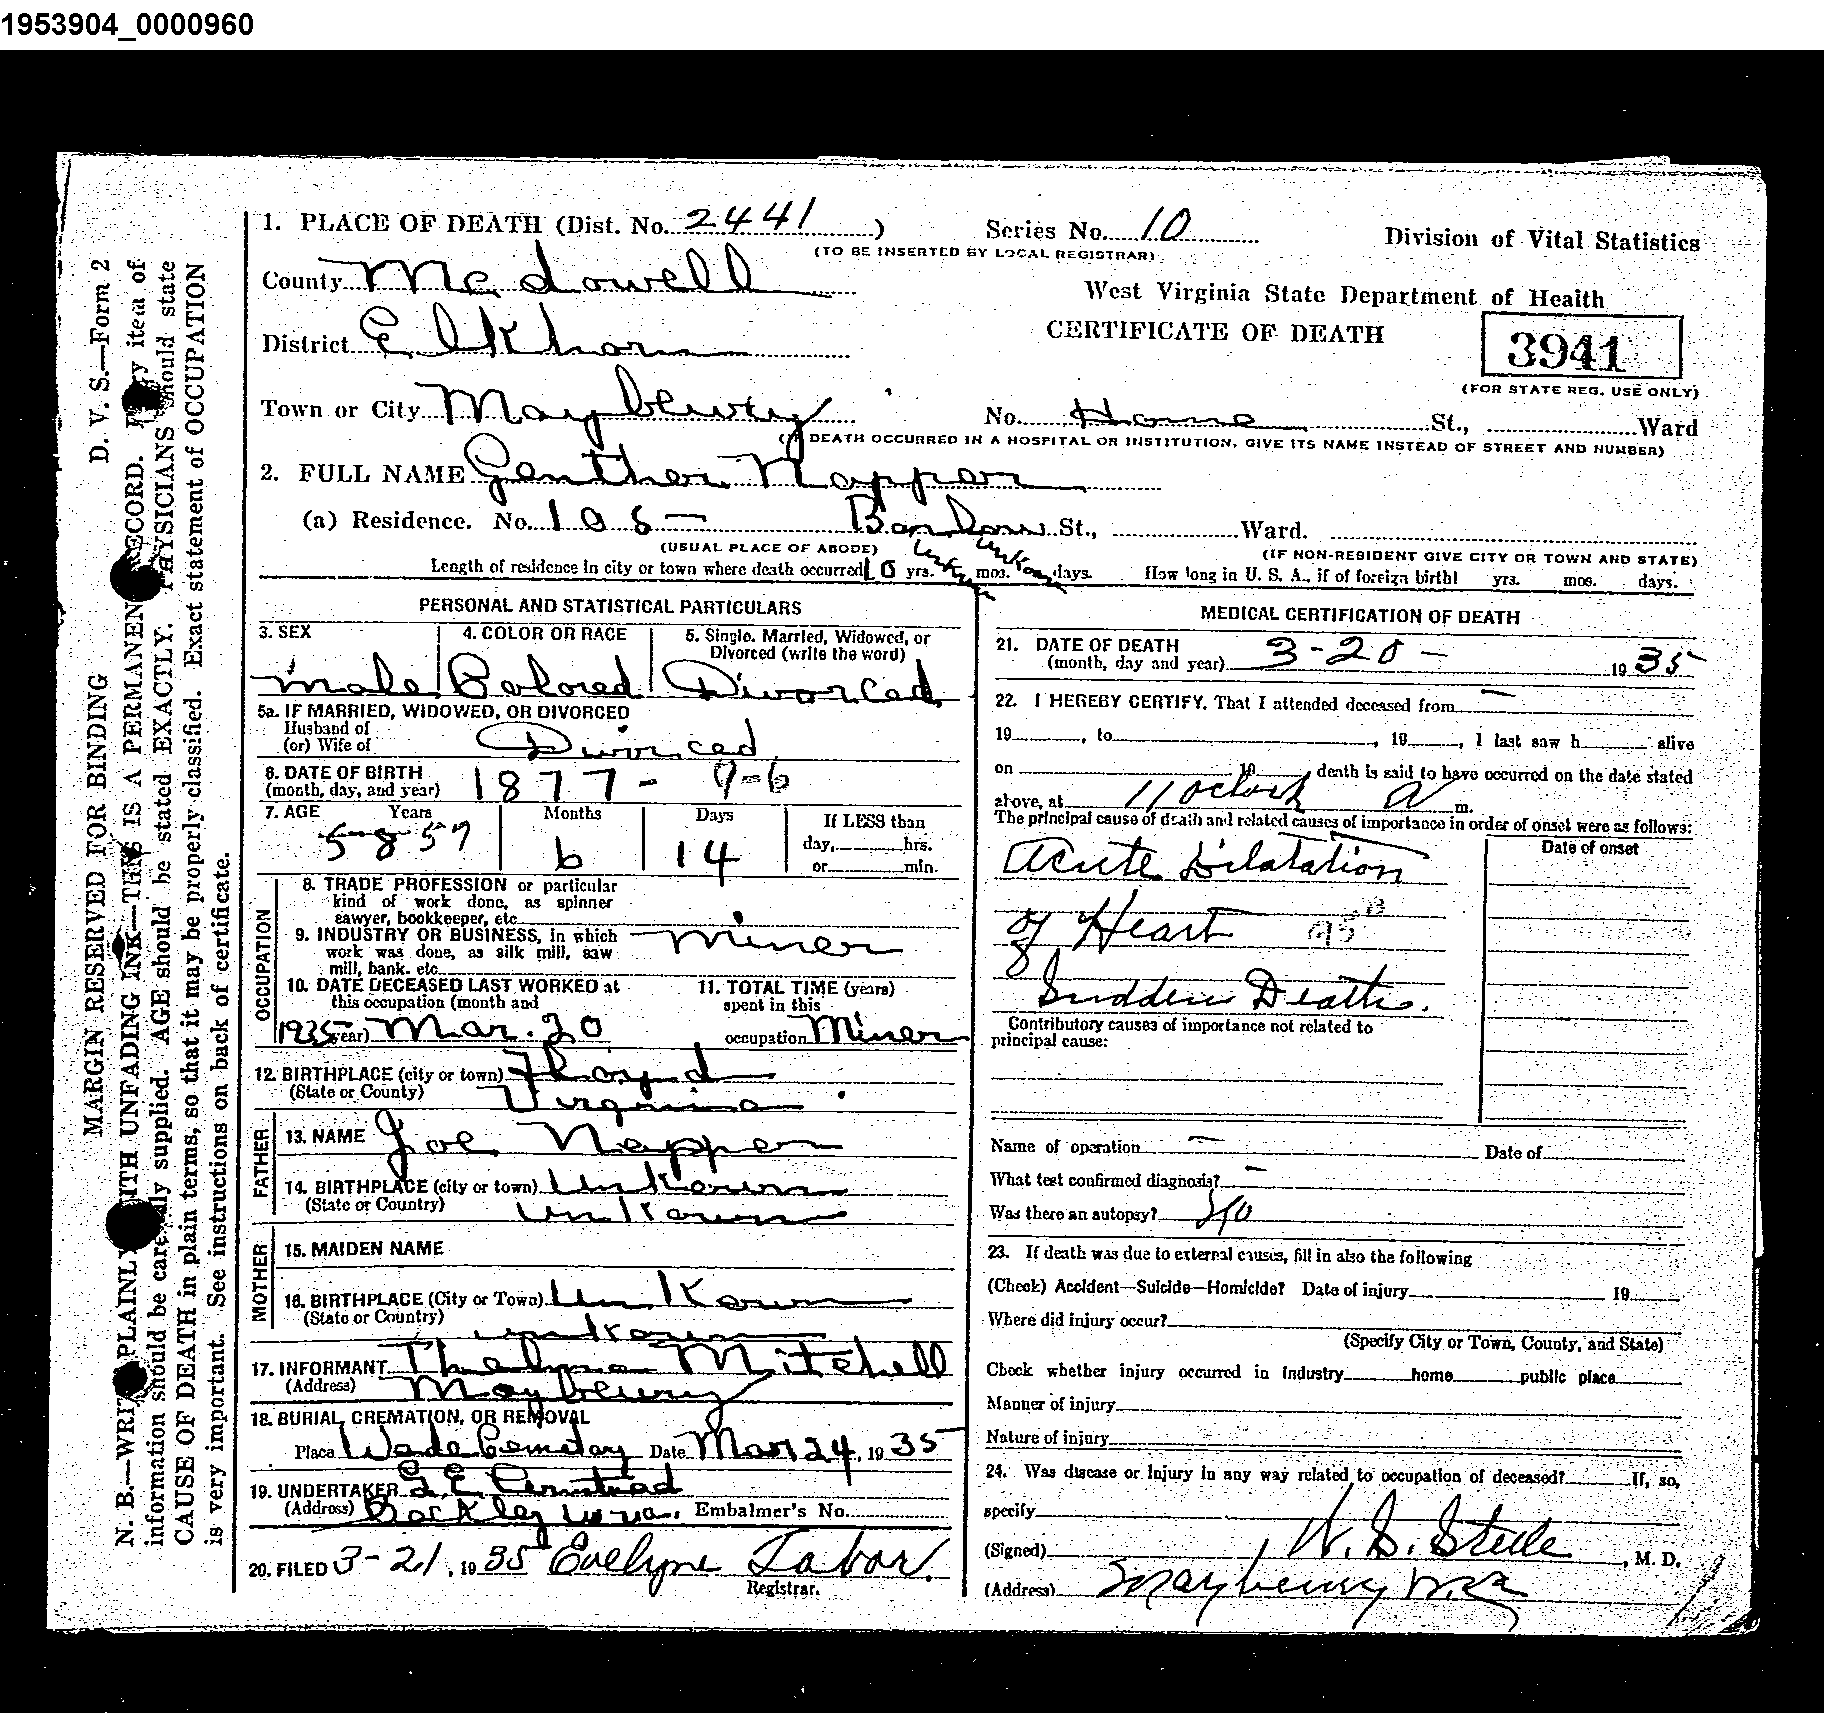 1953904_0000960
D. V. S.—Form 2
MARGIN RESERVED FOR BINDING
N. B.—WRITE PLAINLY WITH UNFADING INK—THIS IS A PERMANENT RECORD. Every item of
information should be carefully supplied. AGE should be stated EXACTLY. PHYSICIANS should state
CAUSE OF DEATH in plain terms, so that it may be properly classified. Exact statement of OCCUPATION
is very important. See instructions on back of certificate.
1. PLACE OF DEATH (Dist. No. 2441) Series No. 10 Division of Vital Statistics
(TO BE INSERTED BY LOCAL REGISTRAR)
County McDowell
West Virginia State Department of Health
District Elkhorn
CERTIFICATE OF DEATH 3941
(FOR STATE REG. USE ONLY)
Town or City Maybeury No. Home St., Ward
(IF DEATH OCCURRED IN A HOSPITAL OR INSTITUTION, GIVE ITS NAME INSTEAD OF STREET AND NUMBER)
2. FULL NAME Genther Napper
(a) Residence. No. 106 – St., Ward.
(USUAL PLACE OF ABODE) (IF NON-RESIDENT GIVE CITY OR TOWN AND STATE)
Length of residence in city or town where death occurred 10 yrs. mos. days. How long in U. S. A., if of foreign birth? yrs. mos. days.
PERSONAL AND STATISTICAL PARTICULARS
3. SEX 4. COLOR OR RACE 5. Single, Married, Widowed, or
Divorced (write the word)
male Colored Divorced
5a. IF MARRIED, WIDOWED, OR DIVORCED
Husband of
(or) Wife of Divorced
6. DATE OF BIRTH
(month, day, and year) 1877 - 9-6
7. AGE Years Months Days If LESS than
57 6 14 day, hrs.
or min.
OCCUPATION
8. TRADE PROFESSION or particular
kind of work done, as spinner
sawyer, bookkeeper, etc
9. INDUSTRY OR BUSINESS, in which
work was done, as silk mill, saw
mill, bank, etc. miner
10. DATE DECEASED LAST WORKED at
this occupation (month and
1935 year) Mar. 20
11. TOTAL TIME (years)
spent in this
occupation Miner
12. BIRTHPLACE (city or town) Floyd
(State or County) Virginia
FATHER
13. NAME Joe Napper
14. BIRTHPLACE (city or town) Unkown
(State or Country) unkown
MOTHER
15. MAIDEN NAME
16. BIRTHPLACE (City or Town) Unkown
(State or Country) unkown
17. INFORMANT Thelma Mitchell
(Address) Maybeury
18. BURIAL, CREMATION, OR REMOVAL
Place Wade Cemetery Date Mar 24, 1935
19. UNDERTAKER G. E.
(Address) W va. Embalmer's No.
20. FILED 3-21, 1935 Evelyne Tabor.
Registrar.
MEDICAL CERTIFICATION OF DEATH
21. DATE OF DEATH
(month, day and year) 3-20- 1935
22. I HEREBY CERTIFY, That I attended deceased from —
19 , to , 19 , I last saw h alive
on 19 , death is said to have occurred on the date stated
above, at 11 oclock A m.
The principal cause of death and related causes of importance in order of onset were as follows:
Date of onset
Acute Dilatation
of Heart 95 B
Sudden Death.
Contributory causes of importance not related to
principal cause:
Name of operation — Date of
What test confirmed diagnosis? –
Was there an autopsy? No
23. If death was due to external causes, fill in also the following
(Check) Accident—Suicide—Homicide? Date of injury 19
Where did injury occur?
(Specify City or Town, County, and State)
Check whether injury occurred in industry home public place
Manner of injury
Nature of injury
24. Was disease or injury in any way related to occupation of deceased? If, so,
specify
(Signed) W. S. Steele, M. D.
(Address) Maybeury W.Va